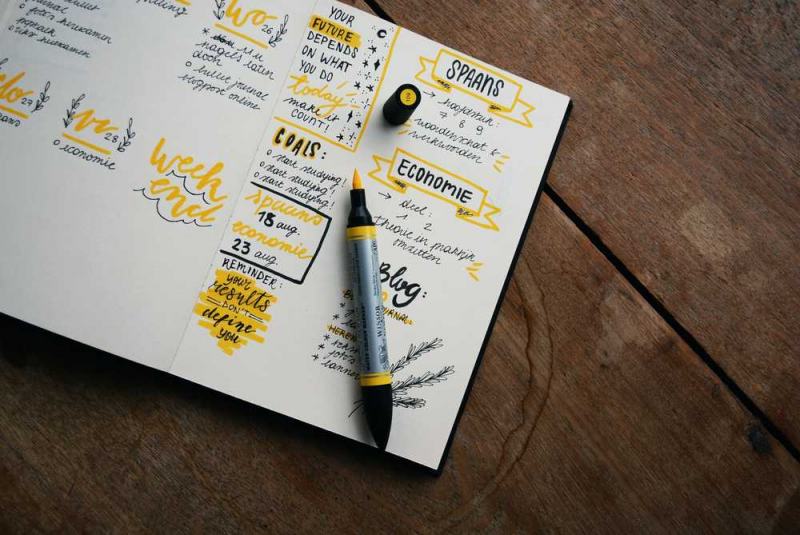 wo 26
nagels laten
doen
o bullet journal
shoppen online
do 29
vr 28
o economie
week
end
YOUR
FUTURE
DEPENDS
ON WHAT
YOU DO
today
make it
COUNT!
GOALS:
o start studying!
o start studying!
o start studying!
spaans
18 aug.
economie
23 aug.
REMINDER:
your
results
DON'T
define
you
SPAANS
→ hoofdstuk:
7 8 9
woordenschat &
werkwoorden
ECONOMIE
→ deel:
1 2
theorie in praktijk
omzetten
Blog:
WINSOR